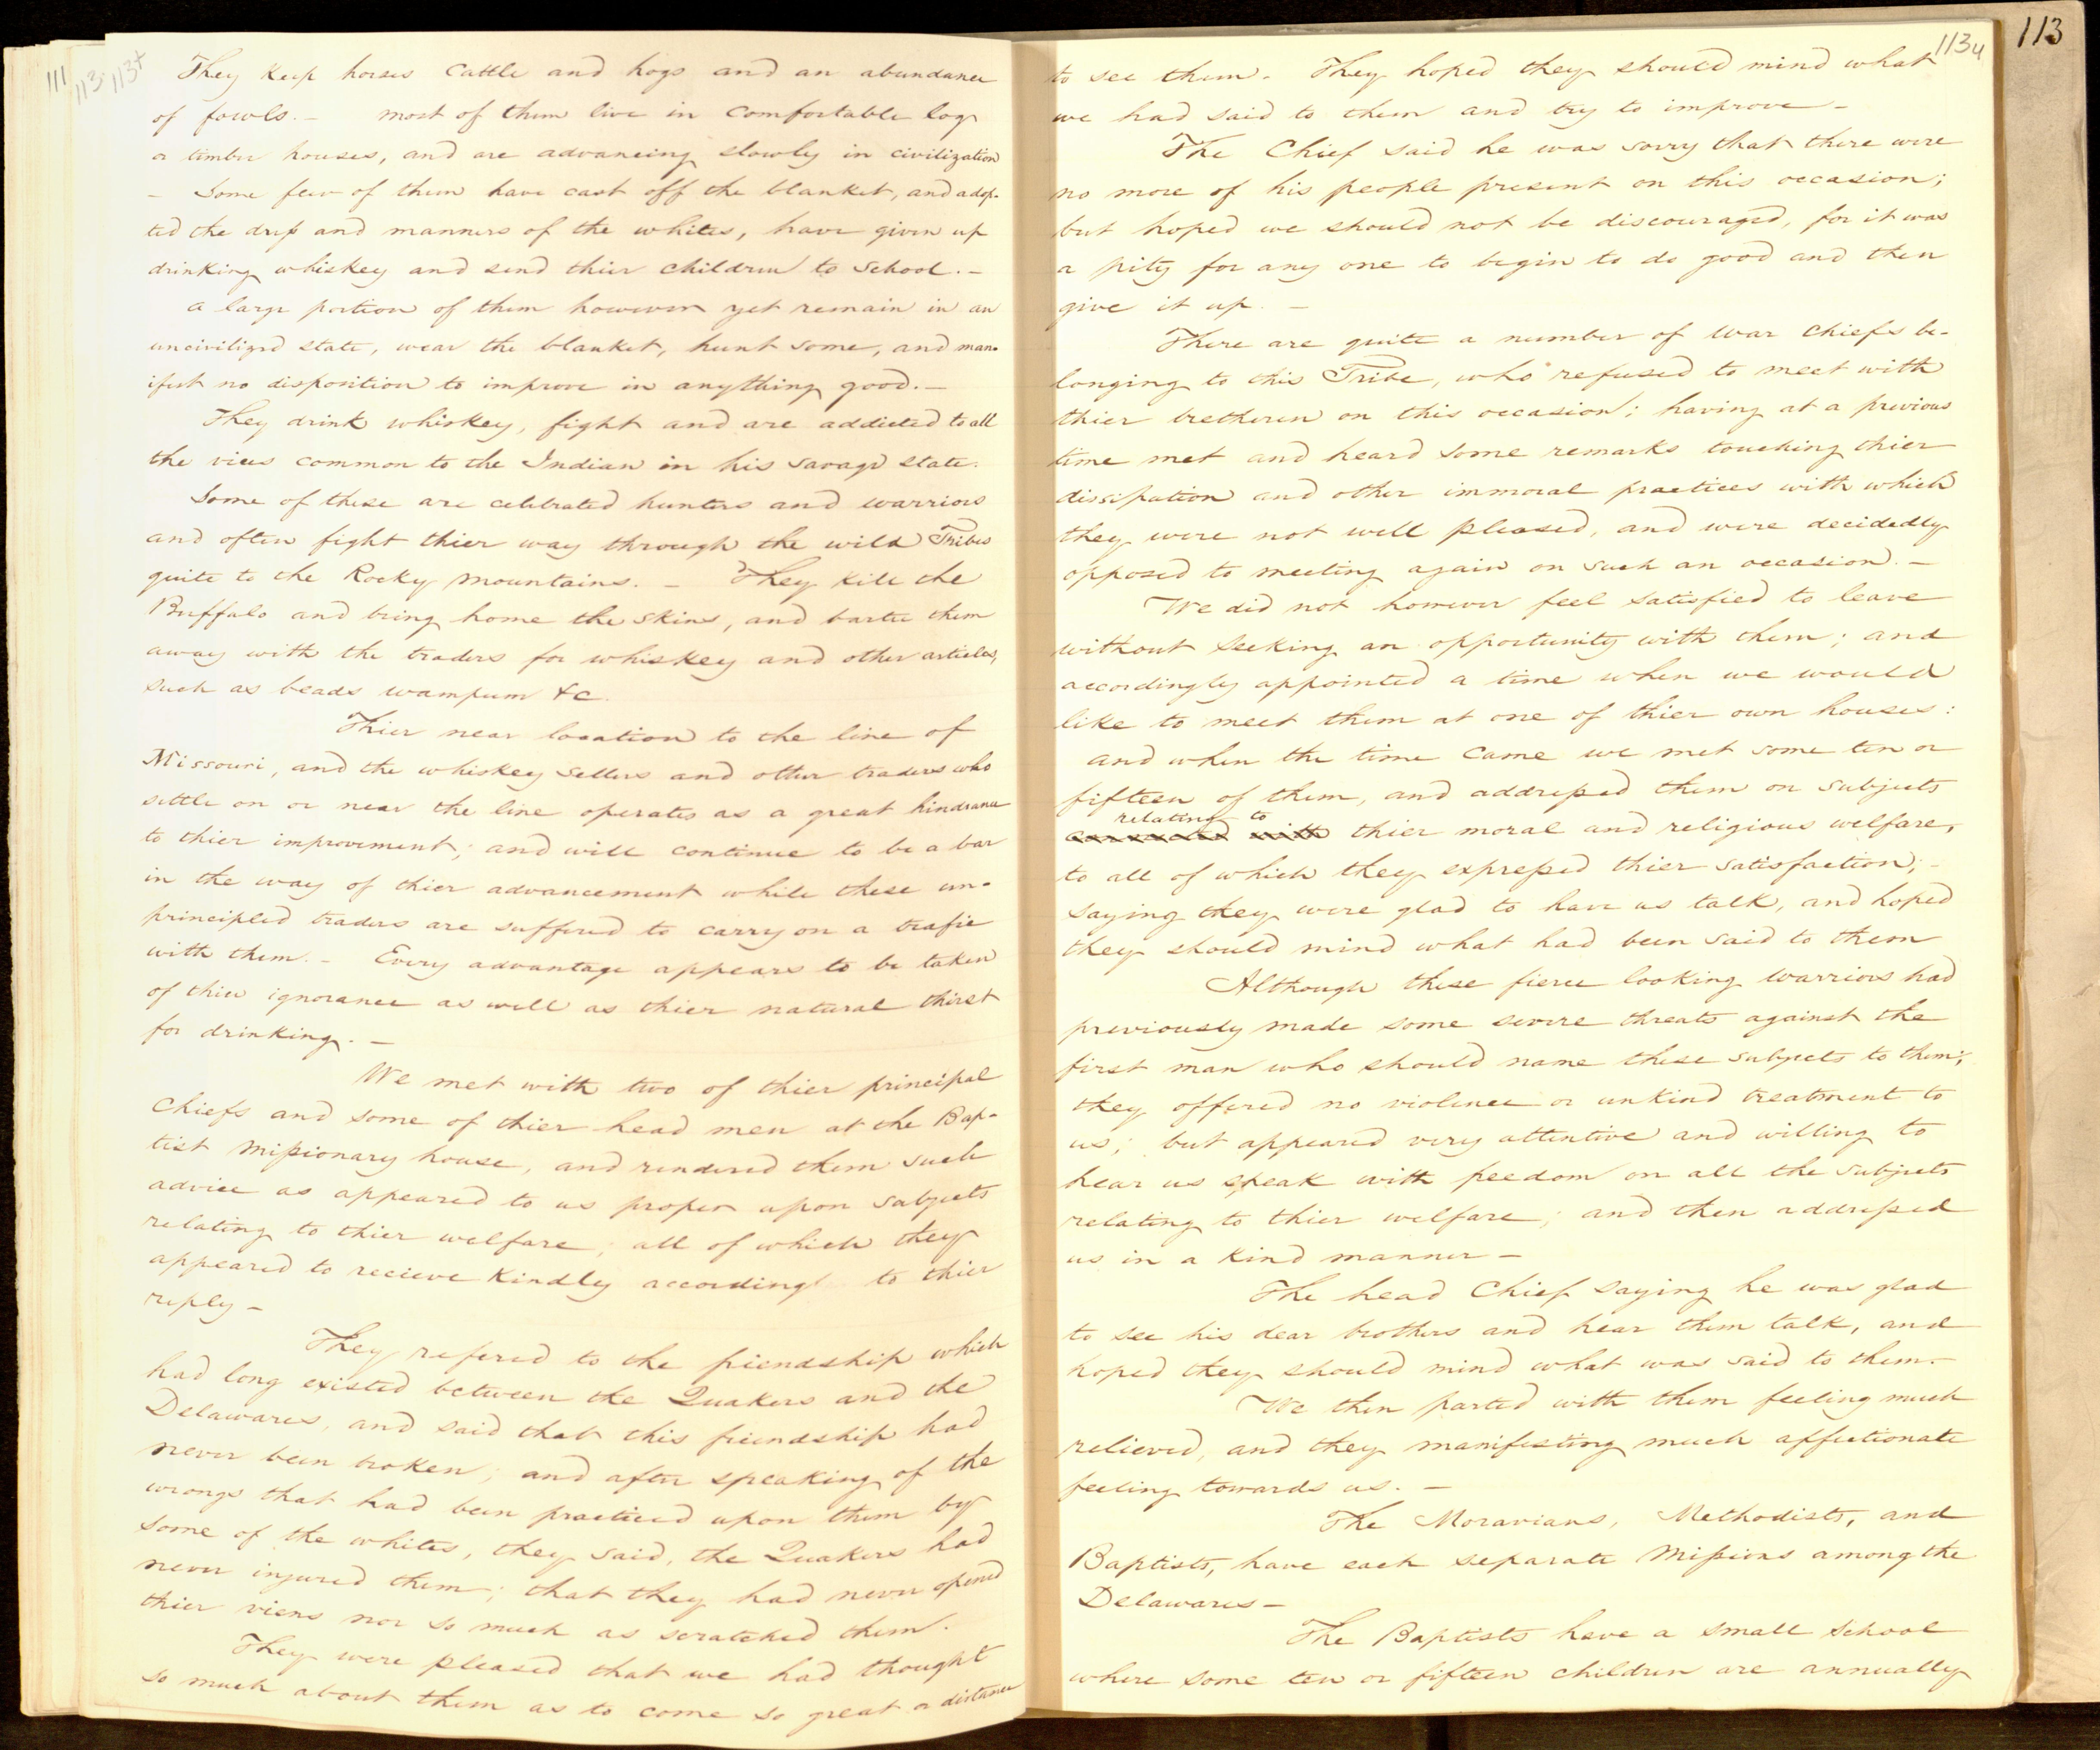 111 113. 113x
They keep horses cattle and hogs and an abundance
of fowls. — most of them live in comfortable log
or timber houses, and are advancing slowly in civilization
— Some few of them have cast off the blanket, and adop-
ted the dress and manners of the whites, have given up
drinking whiskey and send thier children to School. —
a large portion of them however yet remain in an
uncivilized state, wear the blanket, hunt some, and man-
ifest no disposition to improve in anything good. —
They drink whiskey, fight and are addicted to all
the vices common to the Indian in his savage state.
Some of these are celebrated hunters and warriors
and often fight thier way through the wild Tribes
quite to the Rocky mountains. — They kill the
Buffalo and bring home the skins, and barter them
away with the traders for whiskey and other articles,
such as beads wampum &c.
Thier near location to the line of
Missouri, and the whiskey sellers and other traders who
settle on or near the line operates as a great hindrance
to thier improvement; and will continue to be a bar
in the way of thier advancement while these un-
principled traders are suffered to carry on a trafic
with them. — Every advantage appears to be taken
of thier ignorance as well as thier natural thirst
for drinking. —
We met with two of thier principal
Chiefs and some of thier head men at the Bap-
tist Missionary house, and rendered them such
advice as appeared to us proper upon subjects
relating to thier welfare; all of which they
appeared to recieve kindly according to thier
reply —
They refered to the friendship which
had long existed between the Quakers and the
Delawares, and said that this friendship had
never been broken; and after speaking of the
wrongs that had been practiced upon them by
some of the whites, they said, the Quakers had
never injured them; that they had never opened
thier viens nor so much as scratched them.
They were pleased that we had thought
so much about them as to come so great a distance
113
113 4
to see them. They hoped they should mind what
we had said to them and try to improve —
The Chief said he was sorry that there were
no more of his people present on this occasion;
but hoped we should not be discouraged, for it was
a pity for any one to begin to do good and then
give it up. —
There are quite a number of war chiefs be-
longing to this Tribe, who refused to meet with
thier bretheren on this occasion; having at a previous
time met and heard some remarks touching thier
dissipation and other immoral practices with which
they were not well pleased, and were decidedly
opposed to meeting again on such an occasion. —
We did not however feel satisfied to leave
without seeking an opportunity with them; and
accordingly appointed a time when we would
like to meet them at one of thier own houses:
and when the time came we met some ten or
fifteen of them, and addressed them on subjects
relating to
with thier moral and religious welfare,
to all of which they expressed thier satisfaction; —
saying they were glad to have us talk, and hoped
they should mind what had been said to them
Although these fierce looking warriors had
previously made some severe threats against the
first man who should name these subjects to them;
they offered no violence or unkind treatment to
us; but appeared very attentive and willing to
hear us speak with freedom on all the subjects
relating to thier welfare; and then addressed
us in a kind manner —
The head Chief saying he was glad
to see his dear brothers and hear them talk, and
hoped they should mind what was said to them. —
We then parted with them feeling much
relieved, and they manifesting much affectionate
feeling towards us. —
The Moravians, Methodists, and
Baptists, have each separate Missions among the
Delawares —
The Baptists have a small school
where some ten or fifteen children are annually